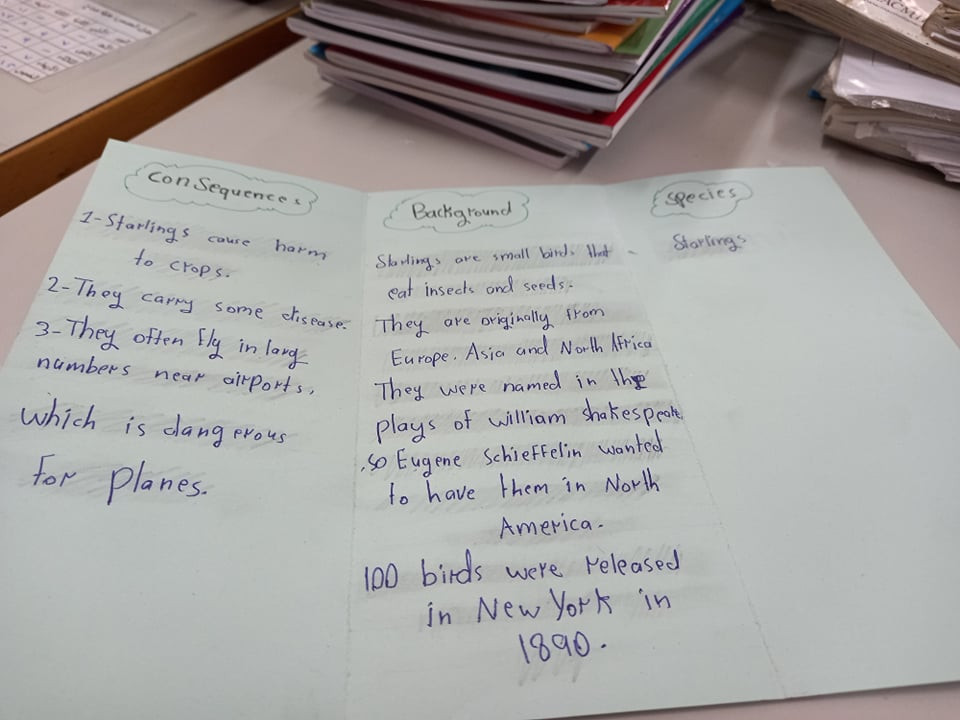 Consequences
1-Starlings cause harm
to crops.
2-They carry some disease.
3-They often fly in larg
numbers near airports,
which is dangerous
for planes.
Background
Starlings are small birds that
eat insects and seeds.
They are originally from
Europe. Asia and North Africa
They were named in the
plays of william shakespeare
,so Eugene Schieffelin wanted
to have them in North
America.
100 birds were released
in New York in
1890.
Species
Starlings